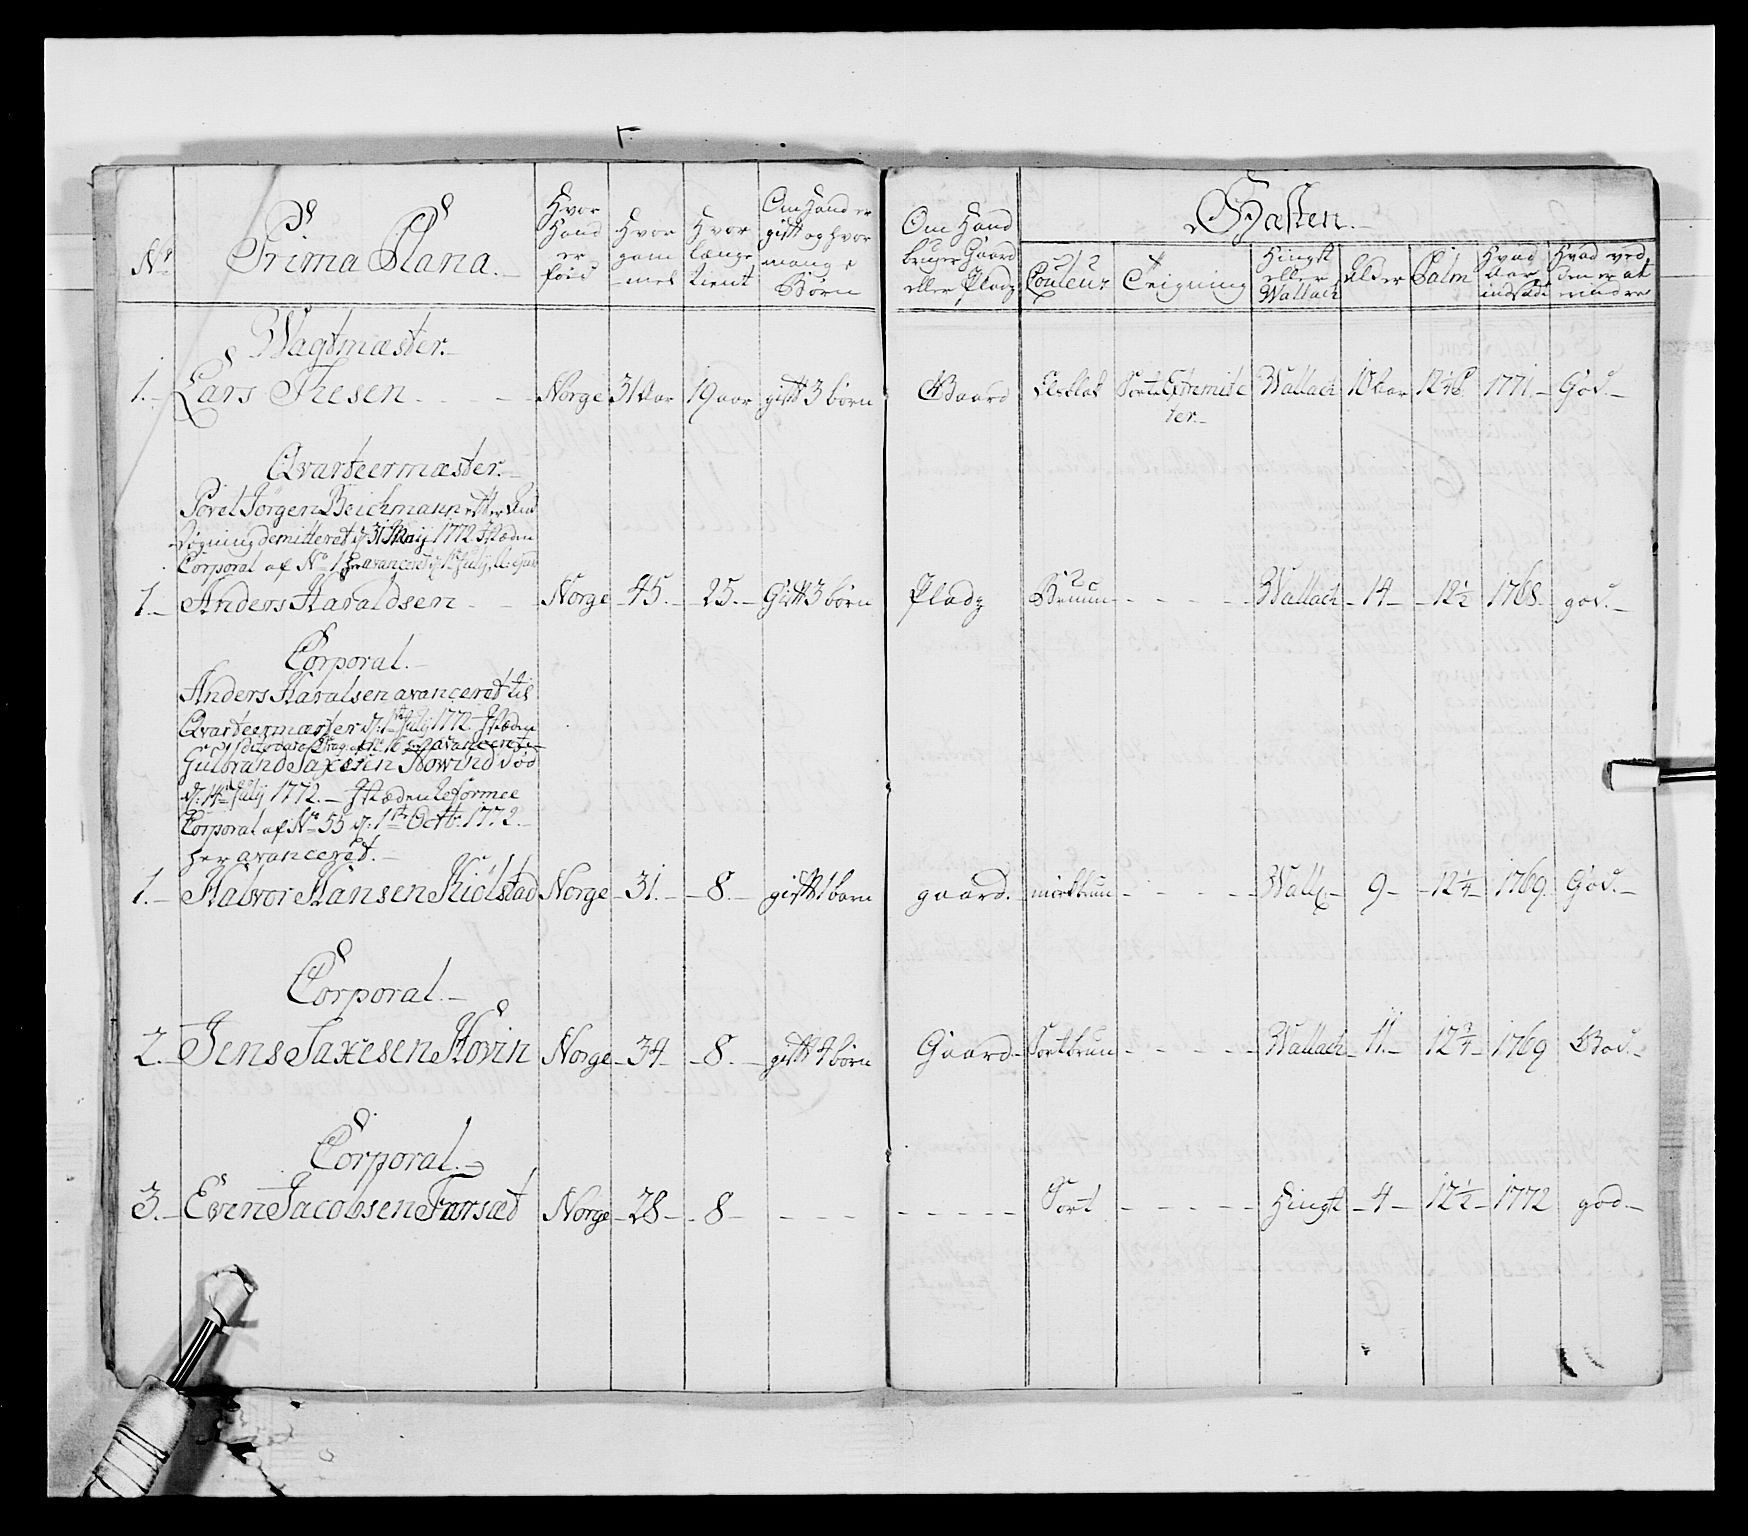 No
Prima Plana.
Hvor Hand er föid
Hvor gammel
Hvor længe tient
Om Hand er gift og hvor mange Börn
Om Hand bruger Gaard eller Pladz
Hæsten.
Couleur
Teigning
Hingst eller Wallach
Alder
Palm
Hvad Aar indsadt
Hvad ved den er at erindre
Wagtmæster.
1. Lars Thesen Norge 31 Aar 19 aar gift 3 börn Gaard Sorte Extremiteter. Wallach 10 aar 1771. God.
Qvarteermæster.
Povel Jörgen Beichmann efter Ansögning demitteret d. 31 Maij 1772 I stæden
Corporal af No 1 her avanceret d. 1te Julij
1. Anders Haraldsen Norge 45. 25. Gift 3 börn Pladz Bruun Wallach 14 12 1/2 1768. god.
Corporal.
Anders Haralsen avanceret til
Qvarteermæster d. 1te Julij 1772. I stæden
Gulbrand Saxesen Hovind död
d. 14de Julij 1772. I stæden Reformee
Corporal af No 55 d. 1te Octb. 1772.
her avanceret.
1. Halvor Hansen Kiölstad Norge 31. 8. gift 1 barn gaard. mörkbrun Wall. 9 12 1/4 1769. God.
Corporal.
2. Jens Saxesen Hovin Norge 34 8. gift 4 börn Gaard. Sortbrun Wallach 11. 12 3/4 1769 God.
Corporal.
3. Even Jacobsen Farsæt Norge 28 8 Sort Hingst 4 12 1/2 1772 god.